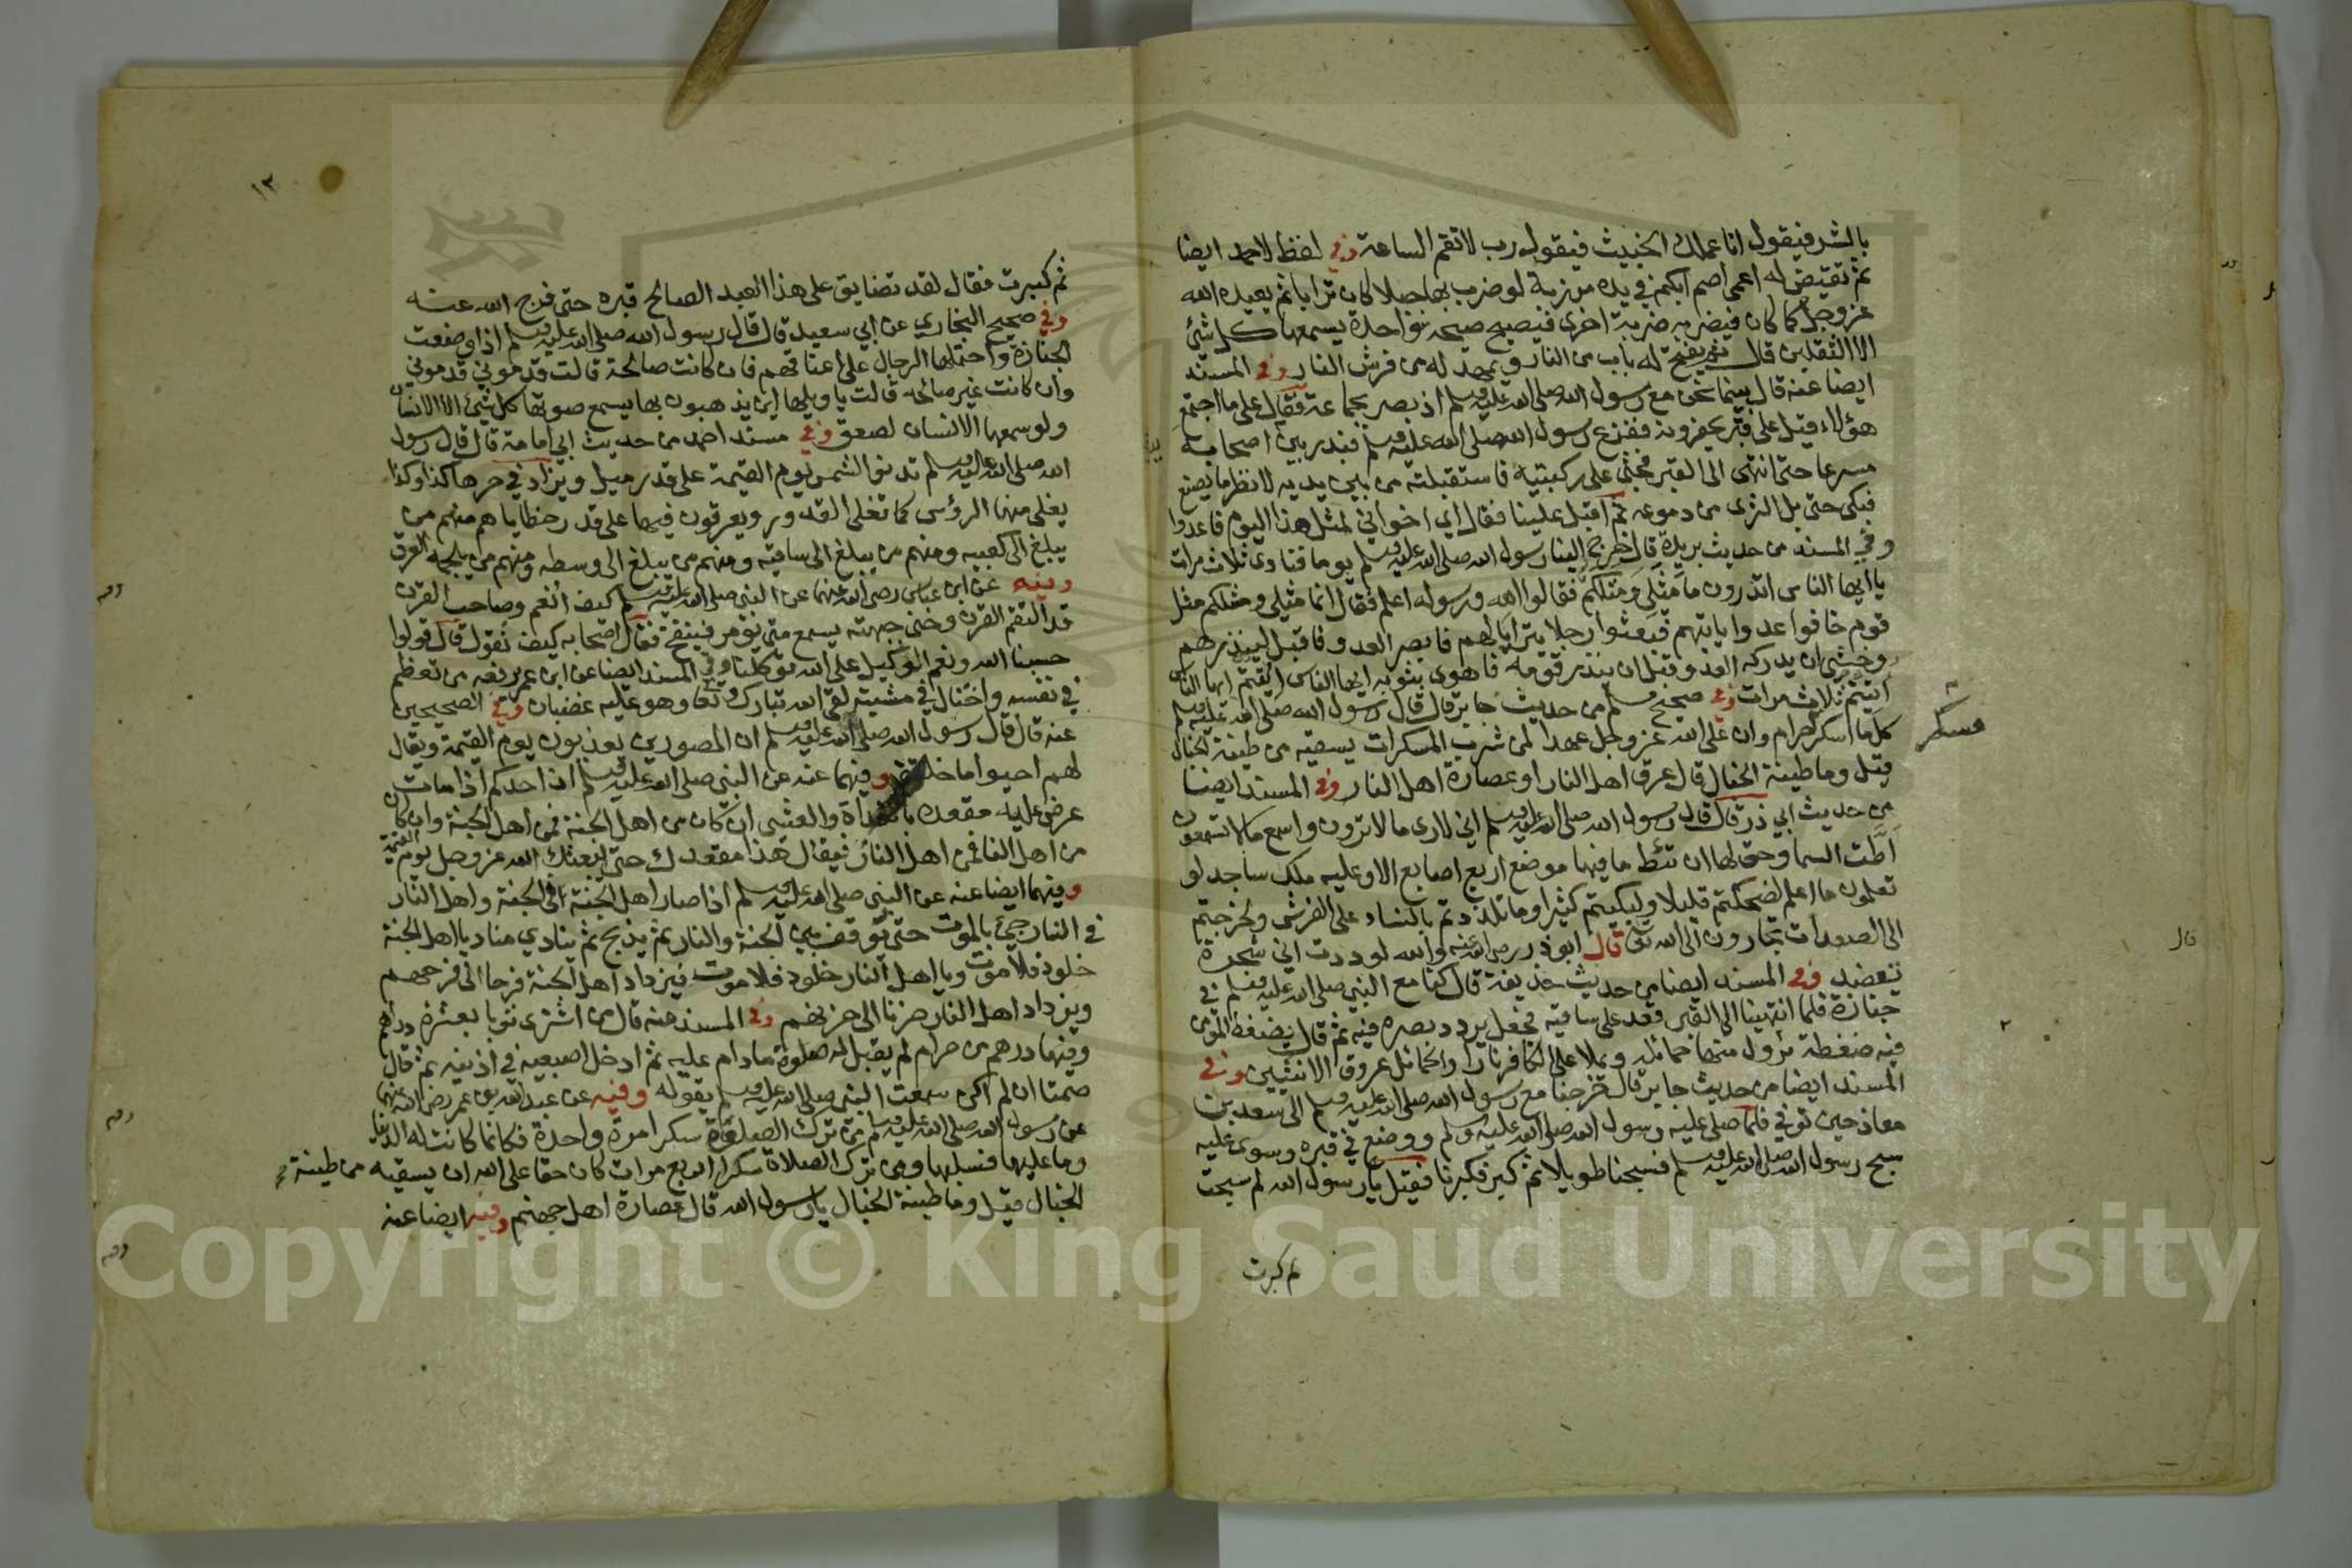 بالشر فيقول انا عملك الخبيث فيقول رب لا تقم الساعة وفي لفظ لاحمد ايضا
ثم تقيض له اعمى اصم ابكم في يده مرزبة لو ضرب بها جبلا كان ترابا ثم يعيده الله
عز وجل كما كان فيضربه ضربة اخرى فيصيح صيحة يسمعها كل شئ
الا الثقلين قال ثم يفتح له باب من النار ويمهد له من فرش النار وفي المسند
ايضا عنه قال بينما نحن مع رسول الله صلى الله عليه وسلم اذ بصر بجماعة فقال على ما اجتمع
هؤلاء قيل على قبر يحفرونه ففزع رسول الله صلى الله عليه وسلم فبدر بين اصحابه
مسرعا حتى انتهى الى القبر فجثى على ركبتيه فاستقبلته من بين يديه لانظر ما يصنع
فبكى حتى بل الثرى من دموعه ثم اقبل علينا فقال اي اخواني لمثل هذا اليوم فاعدوا
وفي المسند من حديث بريدة قال خرج الينا رسول الله صلى الله عليه وسلم يوما فنادى ثلاث مرات
يا ايها الناس اتدرون ما مثلي ومثلكم فقالوا الله ورسوله اعلم فقال انما مثلي ومثلكم مثل
قوم خافوا عدوا ياتيهم فبعثوا رجلا يترايا لهم فابصر العدو فاقبل لينذرهم
وخشى ان يدركه العدو قبل ان ينذر قومه فاهوى بثوبه ايها الناس اتيتم ايها الناس
اتيتم ثلاث مرات وفي صحيح مسلم من حديث جابر قال قال رسول الله صلى الله عليه وسلم
كل ما اسكر حرام وان على الله عز وجل عهدا لمن شرب المسكرات يسقيه من طينة الخبال
مسكر
قيل وما طينة الخبال قال عرق اهل النار او عصارة اهل النار وفي المسند ايضا
من حديث ابي ذر قال قال رسول الله صلى الله عليه وسلم اني لارى ما لا ترون واسمع ما لا تسمعون
اطت السما وحق لها ان تئط ما فيها موضع اربع اصابع الا وعليه ملك ساجد لو
تعلمون ما اعلم لضحكتم قليلا ولبكيتم كثيرا وما تلذذتم بالنساء على الفرش ولخرجتم
الى الصعدات تجارون الى الله تعالى قال ابو ذر رضي الله عنه والله لوددت اني شجرة
تعضد وفي المسند ايضا من حديث حذيفة قال كنا مع النبي صلى الله عليه وسلم في
جنازة فلما انتهينا الى القبر قعد على ساقيه فجعل يردد بصره فيه ثم قال يضغط المومن
فيه ضغطة تزول منها حمائله ويملا على الكافر نارا والحمائل عروق الانثيين وفي
المسند ايضا من حديث جابر قال خرجنا مع رسول الله صلى الله عليه وسلم الى سعد بن
معاذ حين توفي فلما صلى عليه رسول الله صلى الله عليه وسلم ووضع في قبره وسوى عليه
سبح رسول الله صلى الله عليه وسلم فسبحنا طويلا ثم كبر فكبرنا فقيل يا رسول الله لم سبحت
ثم كبرت
١٣
ثم كبرت فقال لقد تضايق على هذا العبد الصالح قبره حتى فرج الله عنه
وفي صحيح البخاري عن ابي سعيد قال قال رسول الله صلى الله عليه وسلم اذا وضعت
الجنازة واحتملها الرجال على اعناقهم فان كانت صالحة قالت قدموني قدموني
وان كانت غير صالحه قالت يا ويلها اين يذهبون بها يسمع صوتها كل شئ الا الانسان
ولو سمعها الانسان لصعق وفي مسند احمد من حديث ابي امامة قال قال رسول
الله صلى الله عليه وسلم تدنو الشمس يوم القيمة على قدر ميل ويزاد في حرها كذا وكذا
يغلي منها الرؤس كما تغلي القدور ويعرقون فيها على قدر خطاياهم منهم من
يبلغ الى كعبيه ومنهم من يبلغ الى ساقيه ومنهم من يبلغ الى وسطه ومنهم من يلجمه العرق
وفيه عن ابن عباس رضي الله عنهما عن النبي صلى الله عليه وسلم كيف انعم وصاحب القرن
قد التقم القرن وحنى جبهته يسمع متى يؤمر فينفخ فقال اصحابه كيف نقول قال قولوا
حسبنا الله ونعم الوكيل على الله توكلنا وفي المسند ايضا عن ابن عمر يرفعه من تعظم
في نفسه واختال في مشيته لقي الله تبارك وتعالى وهو عليه غضبان وفي الصحيحين
عنه قال قال رسول الله صلى الله عليه وسلم ان المصورين يعذبون يوم القيمة ويقال
لهم احيوا ما خلقتم وفيهما عنه عن النبي صلى الله عليه وسلم ان احدكم اذا مات
عرض عليه مقعده بالغداة والعشى ان كان من اهل الجنة فمن اهل الجنة وان كان
من اهل النار فمن اهل النار فيقال هذا مقعدك حتى يبعثك الله عز وجل يوم القيمة
وفيهما ايضا عنه عن النبي صلى الله عليه وسلم اذا صار اهل الجنة في الجنة واهل النار
في النار جيئ بالموت حتى يوقف بين الجنة والنار ثم يذبح ثم ينادي مناد يا اهل الجنة
خلود فلا موت ويا اهل النار خلود فلا موت فيزداد اهل الجنة فرحا الى فرحهم
ويزداد اهل النار حزنا الى حزنهم وفي المسند عنه قال من اشترى ثوبا بعشرة دراهم
وفيها درهم من حرام لم يقبل له صلوة ما دام عليه ثم ادخل اصبعيه في اذنيه ثم قال
صمتا ان لم اكن سمعت النبي صلى الله عليه وسلم يقوله وفيه عن عبد الله بن عمر رضي الله عنهما
عن رسول الله صلى الله عليه وسلم من ترك الصلاة سكرا مرة واحدة فكانما كانت له الدنيا
وما عليها فسلبها ومن ترك الصلاة سكرا اربع مرات كان حقا على الله ان يسقيه من طينة
الخبال قيل وما طينة الخبال يا رسول الله قال عصارة اهل جهنم وفيه ايضا عنه
Copyright © King Saud University